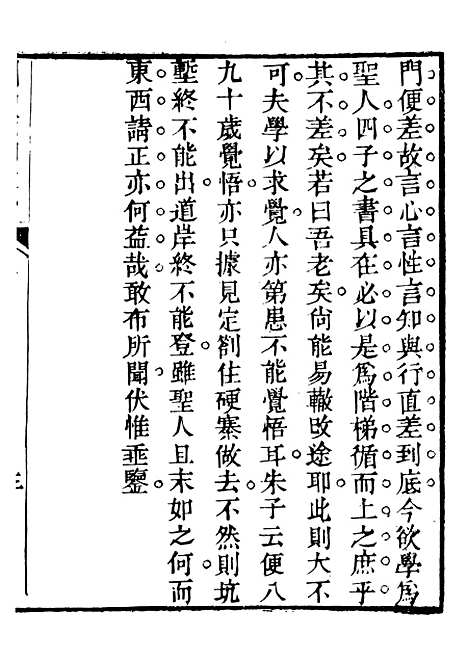 門便差故言心言性言知與行直差到底今欲學爲
聖人四子之書具在必以是爲階梯循而上之庶乎
其不差矣若曰吾老矣尙能易轍改途耶此則大不
可夫學以求覺人亦第患不能覺悟耳朱子云便八
九十歲覺悟亦只據見定劄住硬寨做去不然則坑
塹終不能出道岸終不能登雖聖人且末如之何而
東西請正亦何益哉敢布所聞伏惟垂鑒